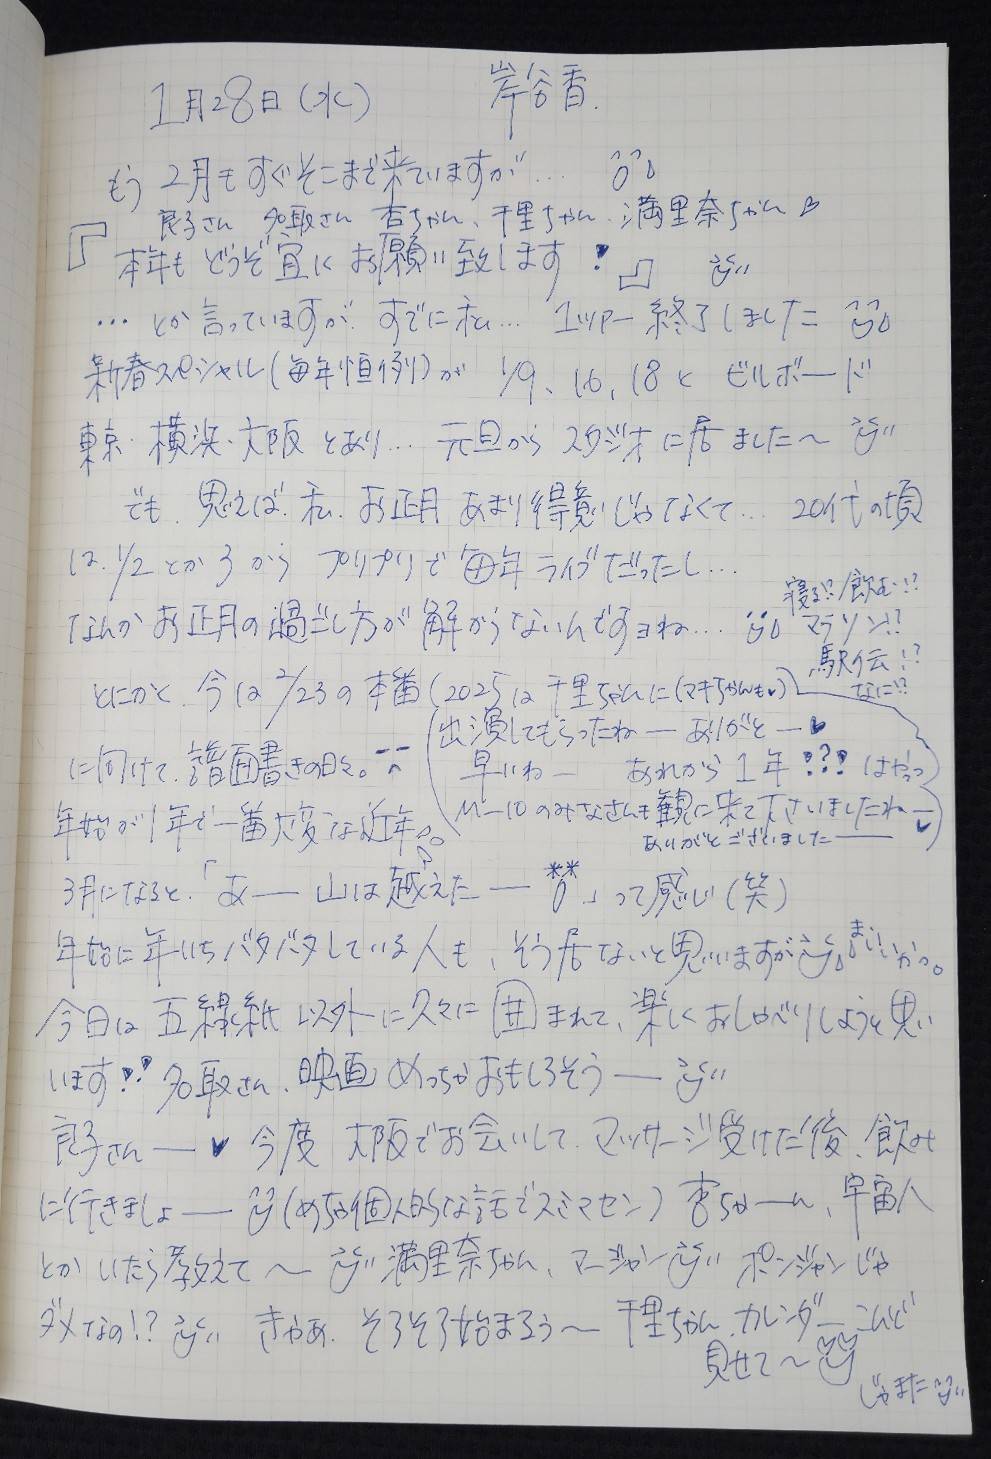 1月28日(水)
岸谷香.
もう 2月もすぐそこまで来ていますが…
良子さん 名取さん 杏ちゃん、千里ちゃん、満里奈ちゃん♡
『本年も どうぞ宜しく お願い致します！』
… とか言っていますが、すでに私… 1ツアー終了しました
新春スペシャル(毎年恒例)が 1/9、16、18と ビルボード
東京・横浜・大阪 とあり… 元旦から スタジオに居ました〜
でも、思えば、私、お正月 あまり得意じゃなくて… 20代の頃
は、1/2とか3から プリプリで 毎年ライブだったし…
なんか お正月の過ごし方が 解からないんですョね…
寝る!? 飲む!?
マラソン!?
駅伝!?
なに!?
とにかく、今は 2/23の本番 (2025は 千里ちゃんに(マキちゃんも♥)
出演してもらったねー ありがとー♥
に向けて、譜面書きの日々。
早いねー あれから1年??? はやっ
年始が1年で一番大変な近年。
M-10のみなさんも観に来て下さいましたねー♥
ありがとございましたー)
3月になると、「あー 山は越えたー」って感じ(笑)
年始に年いちバタバタしている人も、そう居ないと思いますが まいいかっ。
今日は 五線紙 以外に久々に囲まれて、楽しくおしゃべりしようと思い
います!! 名取さん、映画 めっちゃおもしろそうー
良子さんー♥ 今度 大阪でお会いして、マッサージ受けた後、飲み
に行きましょー (めちゃ個人的な話でスミマセン) 杏ちゃーん、宇宙人
とか いたら教えて〜 満里奈ちゃん、マージャン ポンジャンじゃ
ダメなの!? さぁあ、そろそろ始まるぅ〜 千里ちゃん、カレンダー こんど
見せて〜
じゃまた